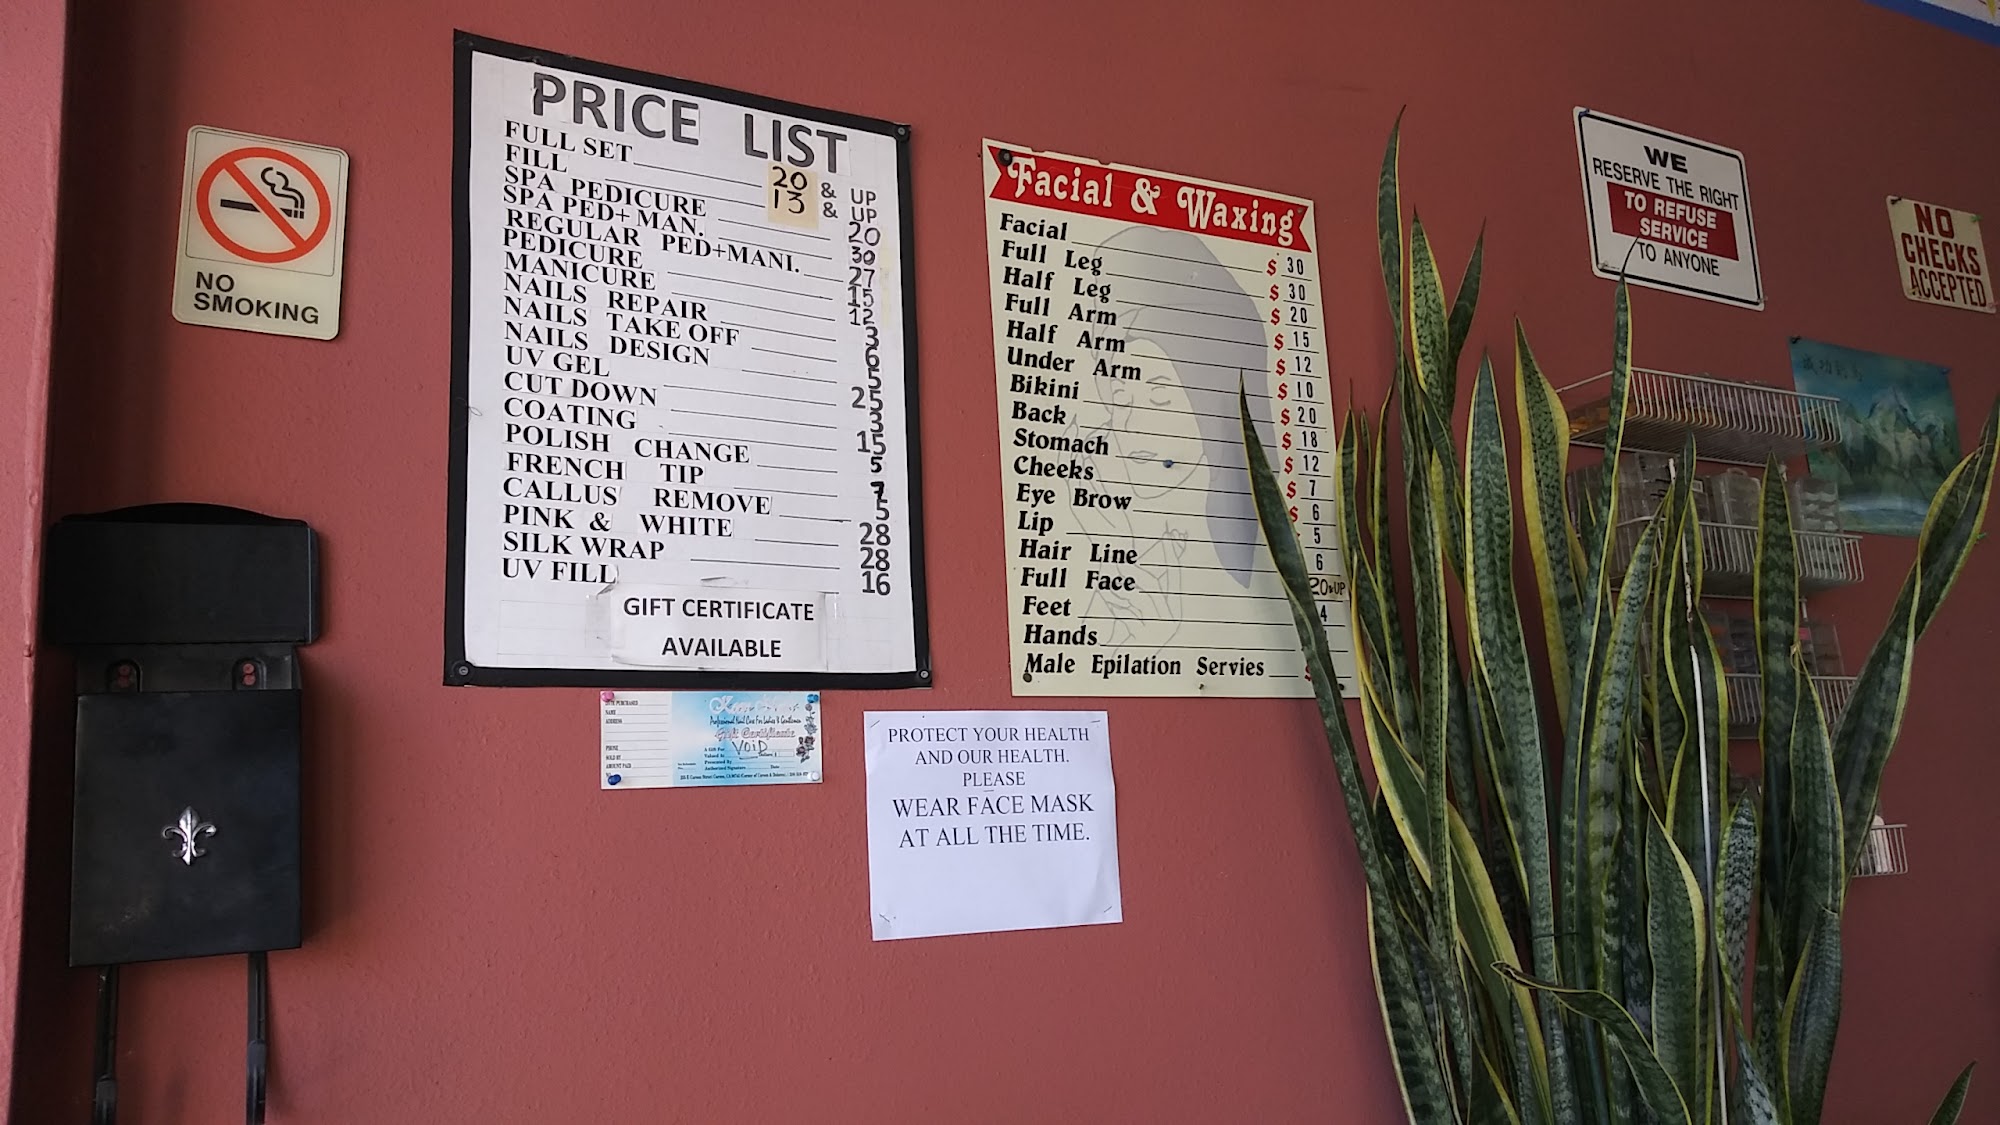 NO
SMOKING
PRICE LIST
FULL SET 20 & UP
FILL 13 & UP
SPA PEDICURE 20
SPA PED+ MAN. 30
REGULAR PED+MANI. 27
PEDICURE 15
MANICURE 12
NAILS REPAIR 3
NAILS TAKE OFF 6
NAILS DESIGN 5
UV GEL 25
CUT DOWN 3
COATING 15
POLISH CHANGE 5
FRENCH TIP 7
CALLUS REMOVE 5
PINK & WHITE 28
SILK WRAP 28
UV FILL 16
GIFT CERTIFICATE
AVAILABLE
Professional Nail Care For Ladies & Gentlemen
Gift Certificate
VOID
PHONE
SOLD BY
AMOUNT PAID
NAME
ADDRESS
Facial & Waxing
Facial $ 30
Full Leg $ 30
Half Leg $ 20
Full Arm $ 15
Half Arm $ 12
Under Arm $ 10
Bikini $ 20
Back $ 18
Stomach $ 12
Cheeks $ 7
Eye Brow $ 6
Lip 5
Hair Line 6
Full Face 20 & UP
Feet 4
Hands
Male Epilation Servies $
PROTECT YOUR HEALTH
AND OUR HEALTH.
PLEASE
WEAR FACE MASK
AT ALL THE TIME.
WE
RESERVE THE RIGHT
TO REFUSE
SERVICE
TO ANYONE
NO
CHECKS
ACCEPTED